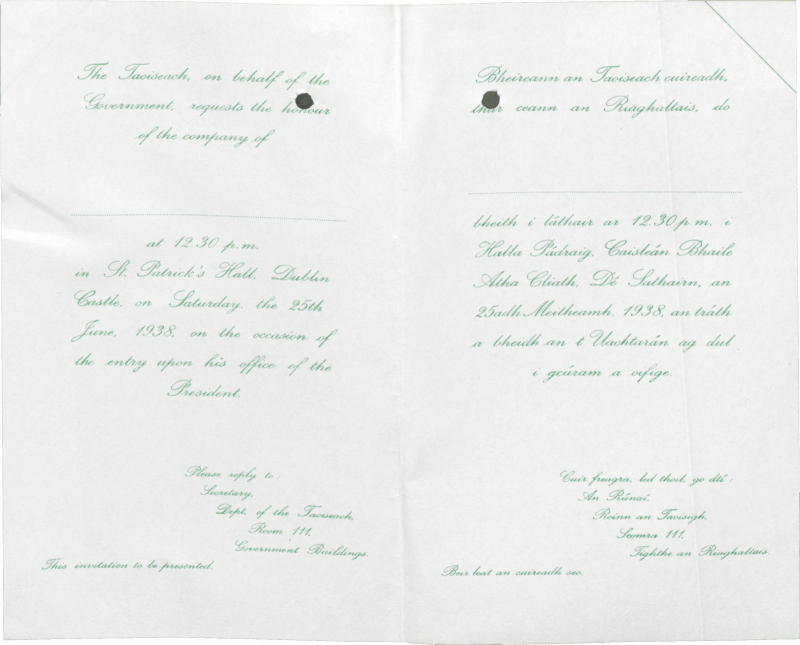 The Taoiseach, on behalf of the
Government, requests the honour
of the company of
at 12.30 p.m.
in St. Patrick's Hall, Dublin
Castle, on Saturday, the 25th
June, 1938, on the occasion of
the entry upon his office of the
President.
Please reply to:
Secretary,
Dept. of the Taoiseach,
Room 111,
Government Buildings.
This invitation to be presented.
Bheireann an Taoiseach cuireadh,
thar ceann an Riaghaltais, do
bheith i láthair ar 12.30 p.m. i
Halla Pádraig, Caisleán Bhaile
Átha Cliath, Dé Sathairn, an
25adh Meitheamh, 1938, an tráth
a bheidh an t Uachtarán ag dul
i gcúram a oifige.
Cuir freagra, led thoil, go dtí:
An Rúnaí,
Roinn an Taoisigh,
Seomra 111,
Tighthe an Riaghaltais.
Beir leat an cuireadh seo.